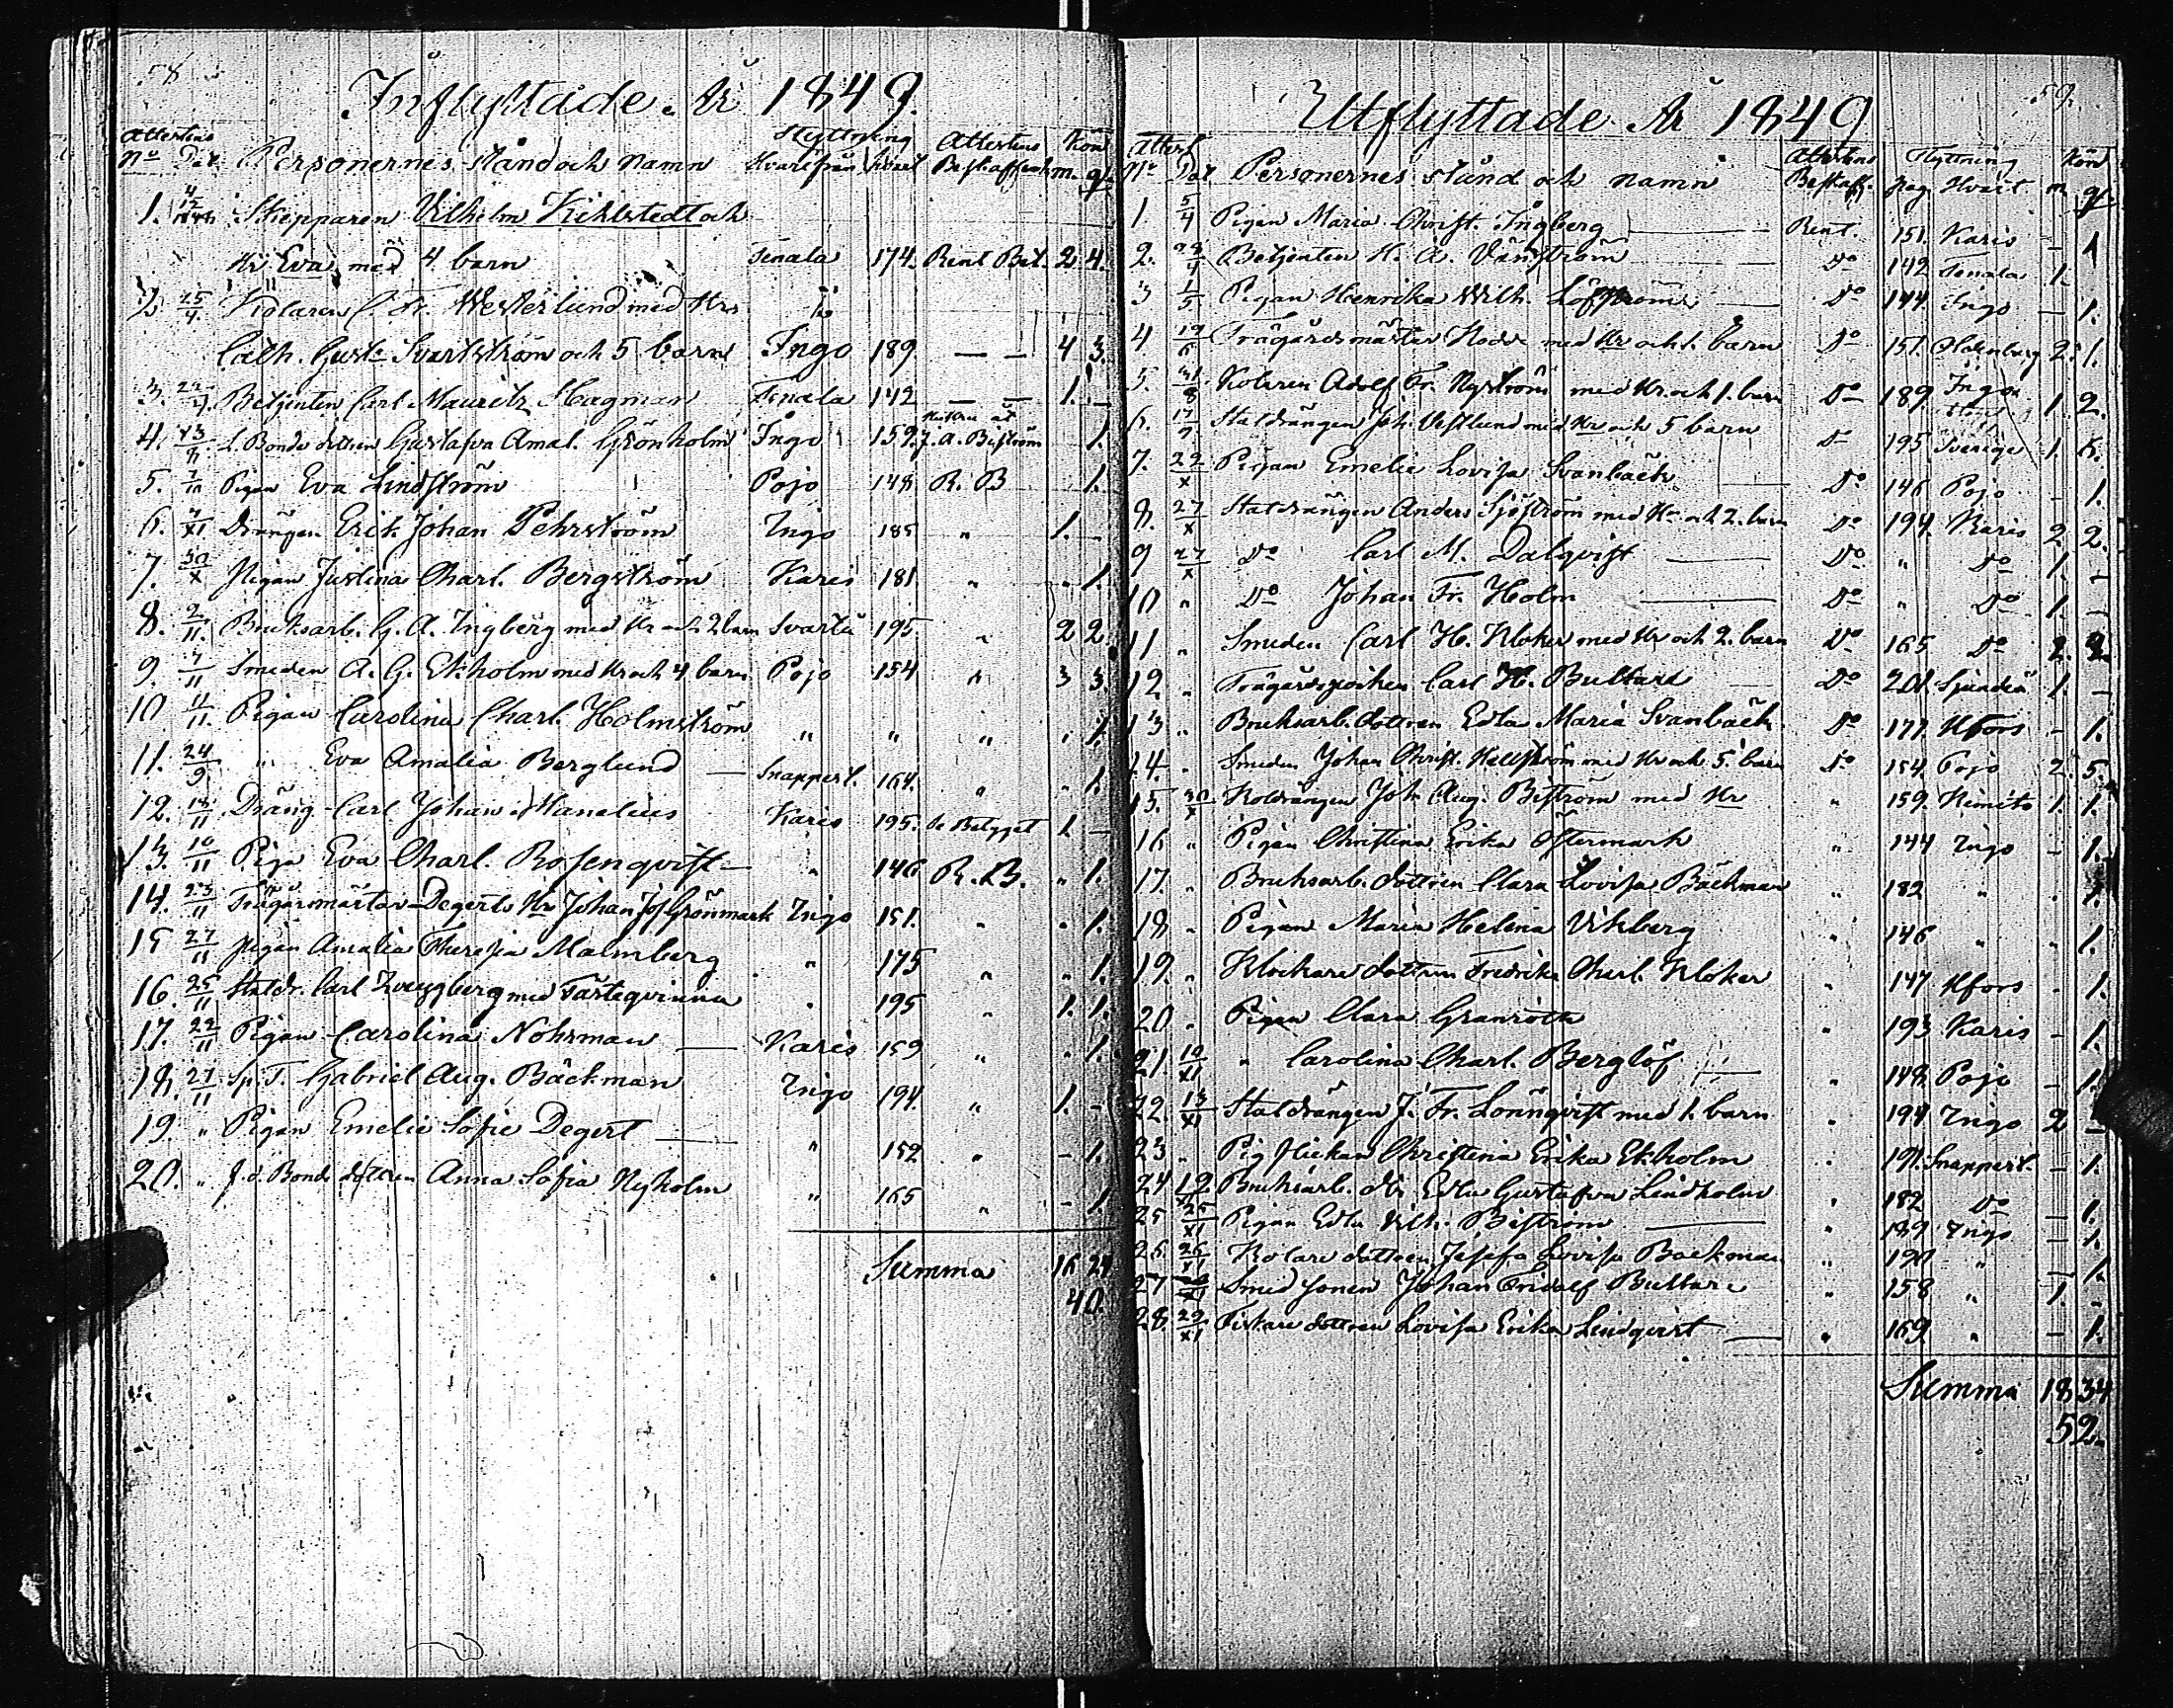 58
Inflyttade År 1849.
Attestens Flyttning Attestens Kön
No Dat Personernes stånd och namn Hvarifrån hvart Beskaffenh. m. q.
1. 4/12 1848 Skepparen Vilhelm Kihlstedt och
Hr Eva med 4 barn Tenala 174. Rent Bet. 2 4.
2. 25/4 Kolaren C. Fr. Westerlund med Hr
Cath. Gust. Svartström och 5 barn Ingo 189. — — 4 3.
3. Betjenten Carl Mauritz Hagman Tenala 142 — — 1. -
4. Bonde dottren Gustafva Amal. Grönholm Ingo 159. J. A. Biström 1.
5. 7/10 Pigan Eva Lindström Pojo 148 R. B 1.
6. 7/XI Drängen Erik Johan Pehrström Ingo 185 " 1. -
7. 30/X Pigan Justina Charl. Bergström Karis 181 " " 1.
8. 2/11. Bruksarb. G. A. Ingberg med Hr och 2 barn Svartå 195 " 2 2.
9. 7/11 Smeden A. G. Ekholm med Hr och 4 barn Pojo 154 " 3 3.
10 11/11. Pigan Carolina Charl. Holmström " " " " 1.
11. 24/9 " Eva Amalia Berglund — Snappert. 164. " " 1.
12. 18/11 Dräng Carl Johan Manelius Karis 195. se Betyget 1. -
13. 10/11 Piga Eva Charl. Rosenqvist — " 146 R. B. " 1.
14. 23/11 Trägårmästar Degerts Hr Johan Jos. Grönmark Ingo 151. " " 1.
15 27/11 Pigan Amalia Theresia Malmberg " 175 " " 1.
16. 25/11 Staldr. Carl Zweygberg med Fästeqvinna " 195 " 1. 1.
17. 22/11 Pigan Carolina Nohrman — Karis 159 " " 1.
18. 27/11 Sp. T. Gabriel Aug. Bäckman Ingo 194. " 1. -
19. " Pigan Emelie Sofie Degert — " 152 " - 1.
20. " Bonde dottren Anna Sofia Nyholm " 165 " - 1.
Summa 16 24
40.
59.
Utflyttade År 1849
Attest Attestens Flyttning Kön
No Dat Personernes stånd och namn Beskaff. Pag. Hvart m. q.
1 5/4 Pigan Maria Christ. Ingberg — Rent. 151. Karis - 1
2. 23/4 Betjenten H. A. Vänström Do 142 Tenala 1.
3 1/5 Pigan Henrika Wilh. Löfström — Do 144. Ingo - 1.
4 19/6 Trägårdsmästar med Hr och 1. barn Do 151. Oldenburg 2. 1.
5. 31/8 Kolaren Adolf Fr. Nyström med Hr och 1. barn Do 189. Ingo 1. 2.
6. 17/9 Staldrängen Joh. Vestlund med Hr och 5 barn Do 195 Sverige 1. 6.
7. 22/X Pigan Emelie Lovisa Svanbäck — Do 146 Pojo - 1.
8. 27/X Staldrängen Anders Sjöström med Hr och 2. barn Do 194. Karis 2 2.
9 27/X Do Carl M. Dalqvist — Do " Do 1. -
10 " Do Johan Fr. Holm — Do " Do 1. -
11 " Smeden Carl H. Kloker med Hr och 2. barn Do 165 Do 2. 2.
12. " Trägårdspojken Carl H. Bultare — Do 201. Sjundeå 1. -
13 " Bruksarb. dottren Edla Maria Svanbäck Do 177. Hfors - 1.
14. " Smeden Johan Christ. Hellström med Hr och 5 barn Do 154. Pojo 2. 5.
15. 30/X Koldrängen Joh. Aug. Biström med Hr " 159. Kimito 1. 1.
16 " Pigan Christina Erika Östermark " 144 Ingo - 1.
17. " Bruksarb. dottren Clara Lovisa Bäckman " 182 " . 1.
18 " Pigan Maria Helena Vikberg " 146 " . 1.
19. " Klockare dottren Fredrika Charl. Kloker " 147 Hfors . 1.
20 " Pigan Clara Granroth " 193 Karis - 1.
21. 10/XI " Carolina Charl. Berglöf — " 148. Pojo - 1.
22. 13/XI Staldrängen J. Fr. Lönnqvist med 1. barn " 194 Ingo 2 -
23 " Pig flickan Christina Erika Ekholm " 191. Snappert. - 1.
24 19/XI Bruksarb. dtr Edla Gustafva Lindholm " 182 Do - 1.
25 25/XI Pigan Edla Vilh. Biström — " 189 Ingo - 1.
26. 26/XI Kolare dottren Josefa Lovisa Backman " 190 " - 1.
27 Smed sonen Johan Fridolf Bultare " 158 " 1. -
28. 29/XI Fiskare dottren Lovisa Erika Lindqvist — " 169 " - 1.
Summa 18 34
52.